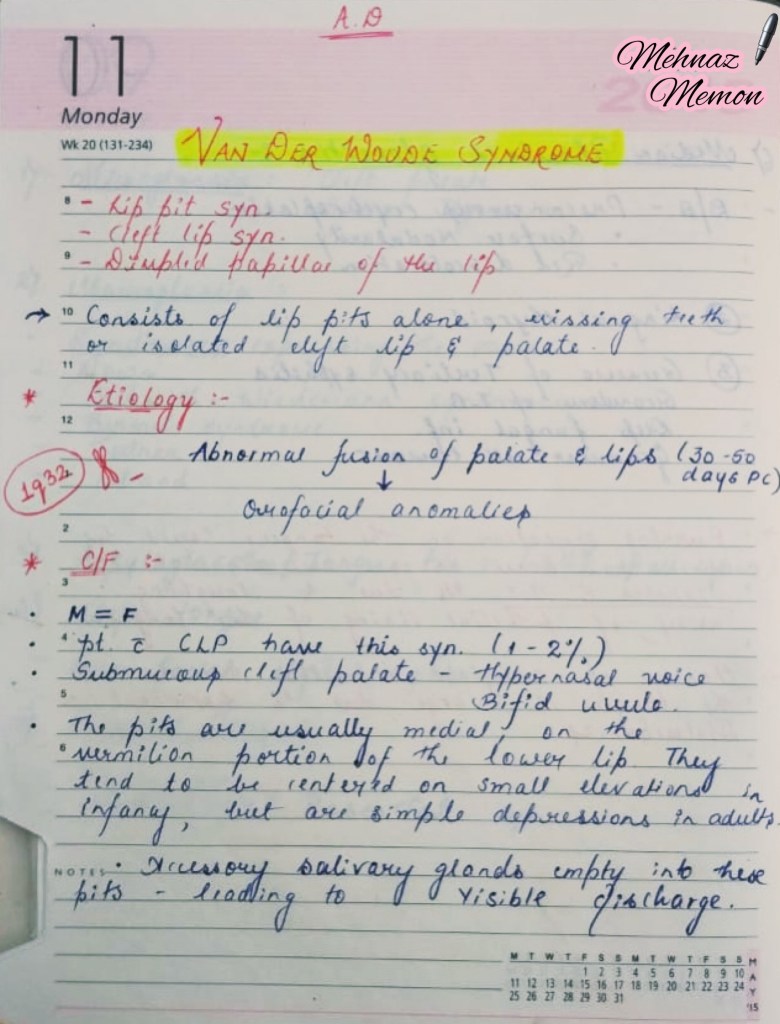 A.D
11
Monday
Wk 20 (131-234)
Mehnaz
Memon
VAN DER WOUDE SYNDROME
8 - Lip pit syn.
- Cleft lip syn.
9 - Dimpled papillae of the lip
→ 10 Consists of lip pits alone, missing teeth
or isolated cleft lip & palate.
11
* Etiology :-
12
1932 - Abnormal fusion of palate & lips (30-50
days PC)
↓
Orofacial anomalies
2
* C/F :-
3
• M = F
• 4 pt. c̄ CLP have this syn. (1-2%)
• Submucous cleft palate - Hypernasal voice
5 Bifid uvula.
• The pits are usually medial, on the
6 vermilion portion of the lower lip. They
tend to be centered on small elevations in
infancy, but are simple depressions in adults.
NOTES • Accessory salivary glands empty into these
pits - leading to visible discharge.
M T W T F S S M T W T F S S
1 2 3 4 5 6 7 8 9 10
11 12 13 14 15 16 17 18 19 20 21 22 23 24
25 26 27 28 29 30 31
MAY '15